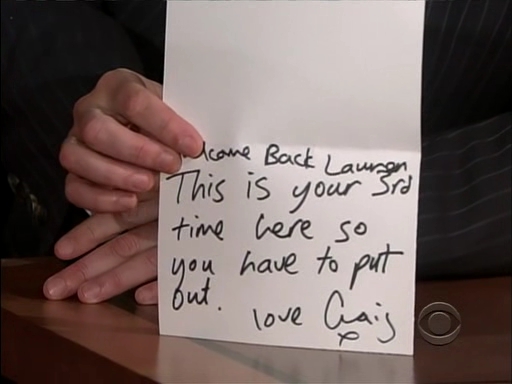 Welcome Back Lauren
This is your 3rd
time here so
you have to put
out.
love Craig
x